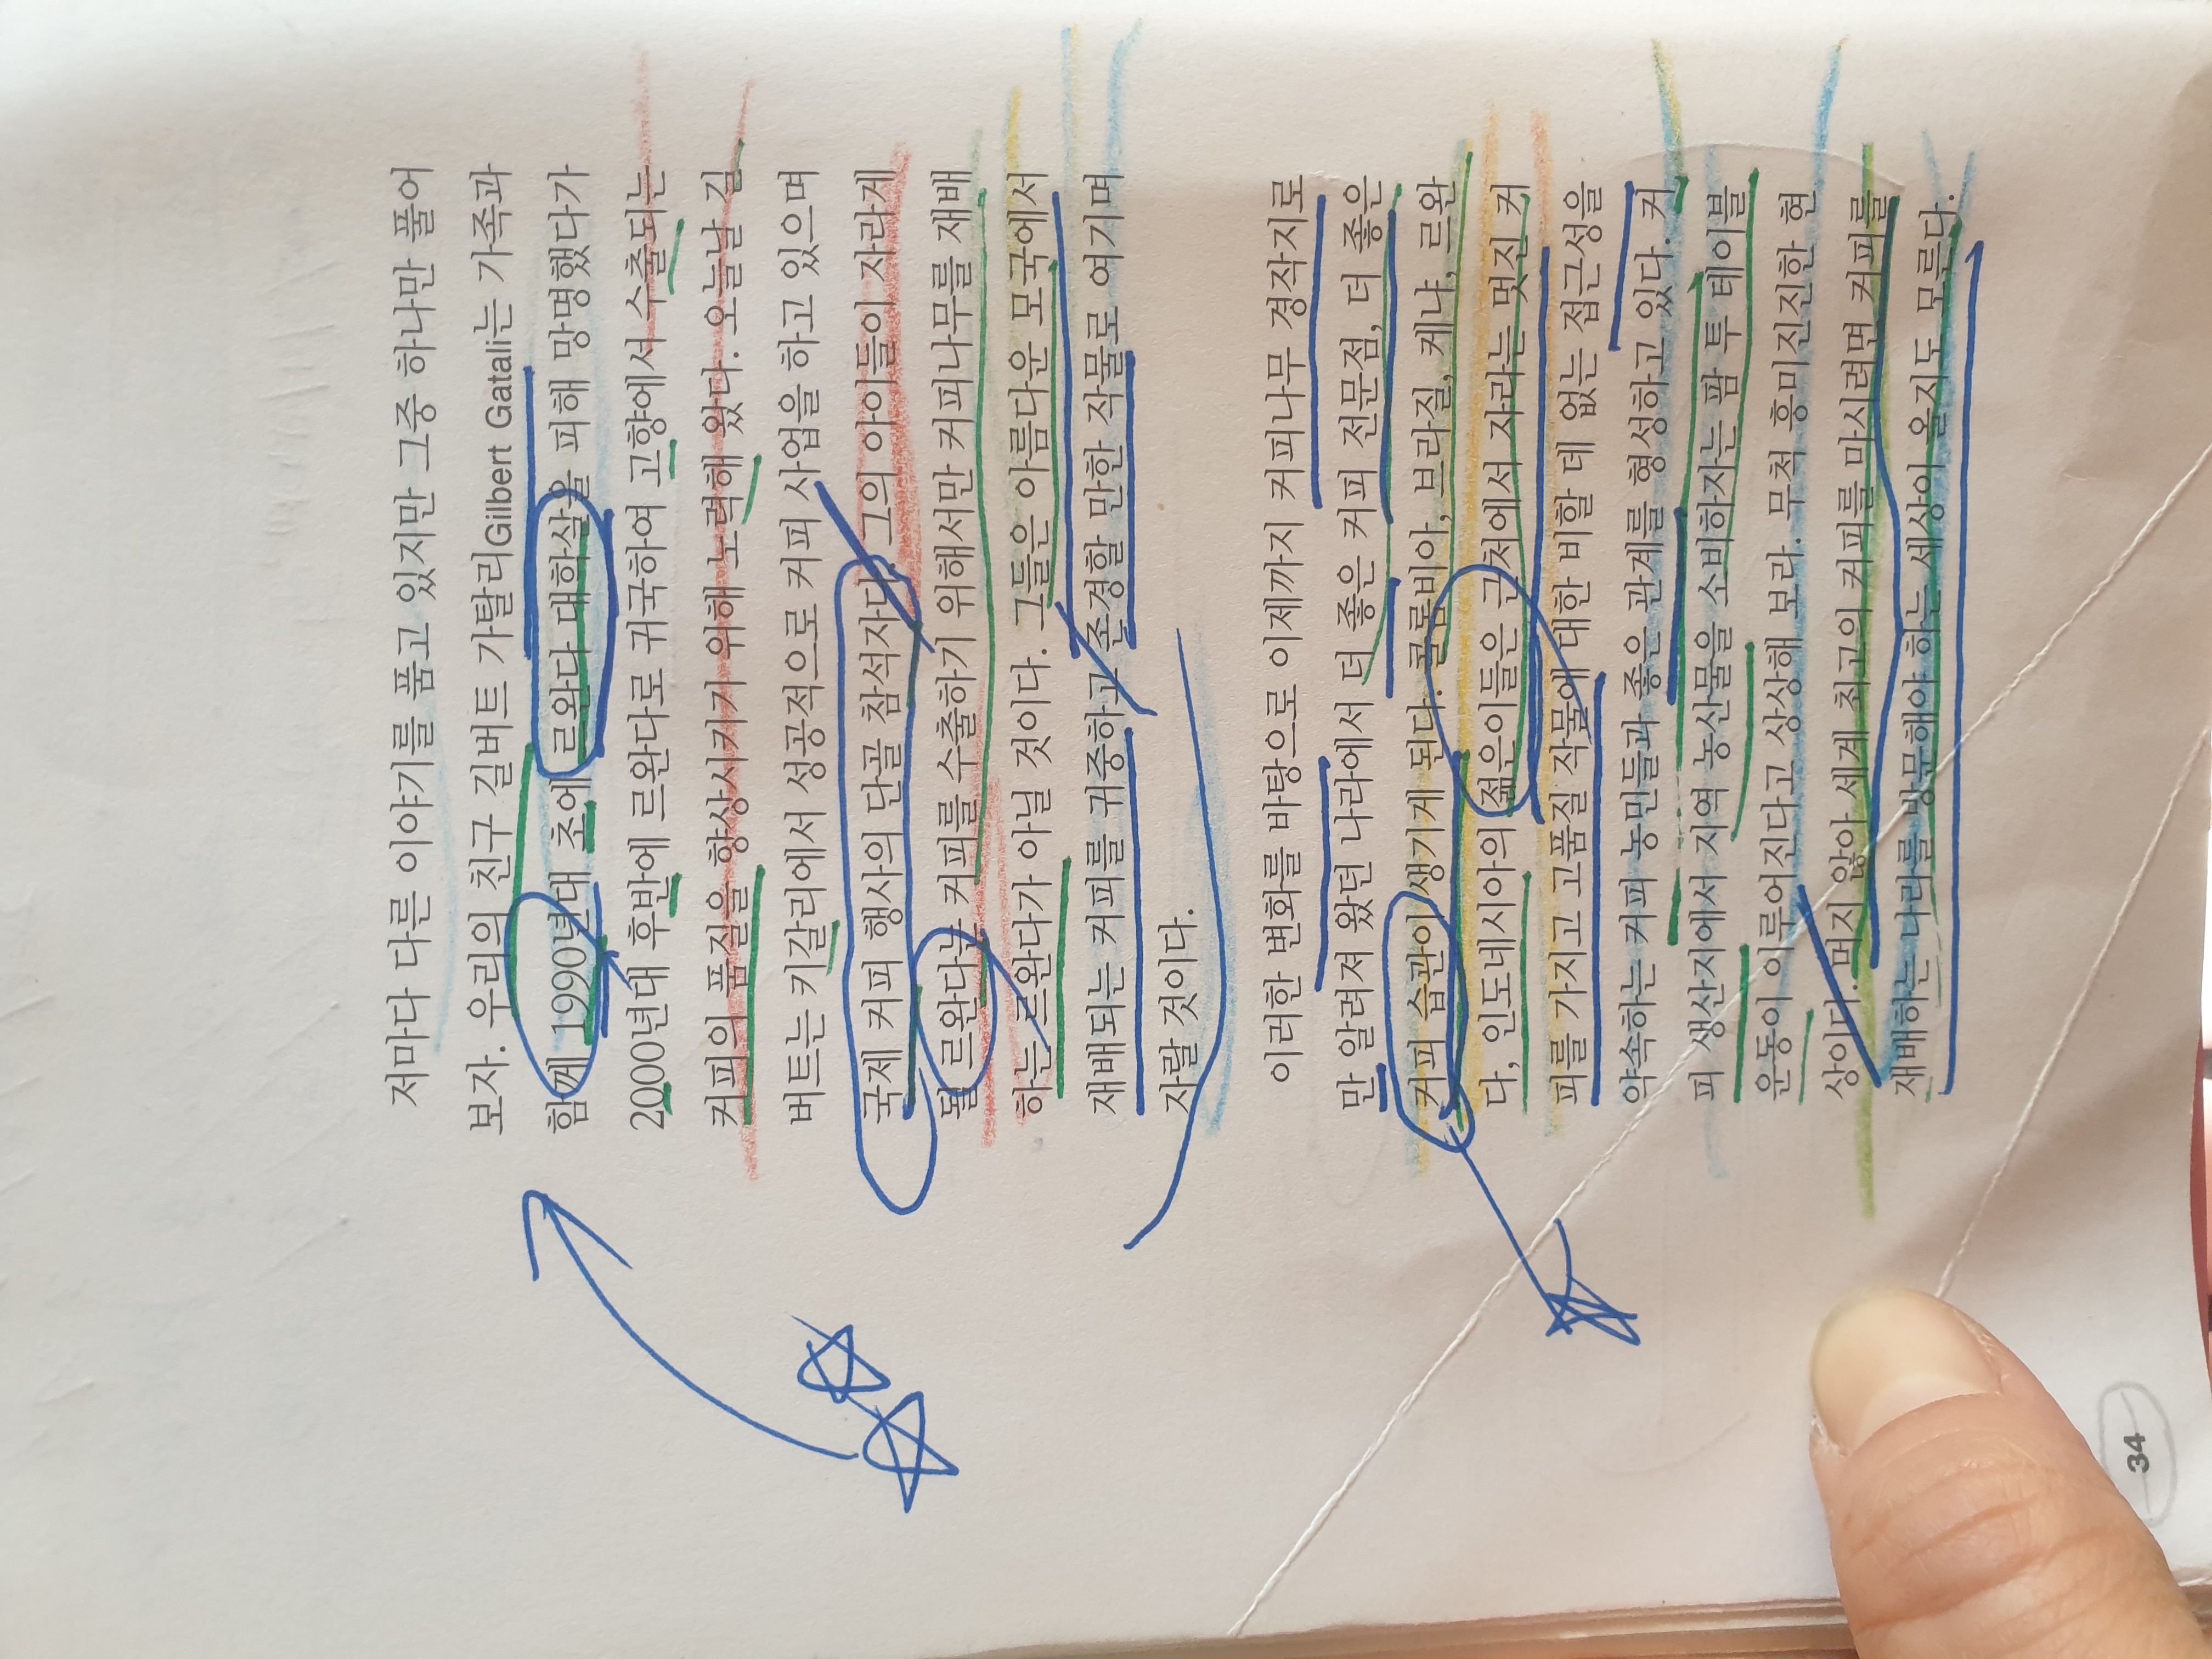 저마다 다른 이야기를 품고 있지만 그중 하나만 풀어
보자. 우리의 친구 길버트 가탈리Gilbert Gatali는 가족과
함께 1990년대 초에 르완다 대학살을 피해 망명했다가
2000년대 후반에 르완다로 귀국하여 고향에서 수출되는
커피의 품질을 향상시키기 위해 노력해 왔다. 오늘날 길
버트는 키갈리에서 성공적으로 커피 사업을 하고 있으며
국제 커피 행사의 단골 참석자다. 그의 아이들이 자라게
될 르완다는 커피를 수출하기 위해서만 커피나무를 재배
하는 르완다가 아닐 것이다. 그들은 아름다운 모국에서
재배되는 커피를 귀중하고 존경할 만한 작물로 여기며
자랄 것이다.
이러한 변화를 바탕으로 이제까지 커피나무 경작지로
만 알려져 왔던 나라에서 더 좋은 커피 전문점, 더 좋은
커피 습관이 생기게 된다. 콜롬비아, 브라질, 케냐, 르완
다, 인도네시아의 젊은이들은 근처에서 자라는 멋진 커
피를 가지고 고품질 작물에 대한 비할 데 없는 접근성을
약속하는 커피 농민들과 좋은 관계를 형성하고 있다. 커
피 생산지에서 지역 농산물을 소비하자는 팜 투 테이블
운동이 이루어진다고 상상해 보라. 무척 흥미진진한 현
상이다. 머지 않아 세계 최고의 커피를 마시려면 커피를
재배하는 나라를 방문해야 하는 세상이 올지도 모른다.
34